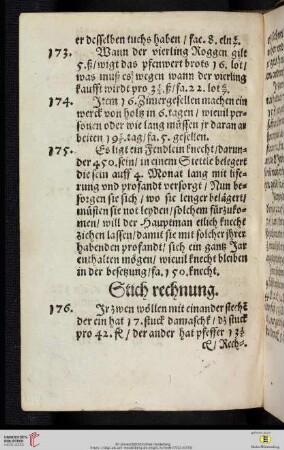 er desselben tuchs haben / fac. 8. eln
173. Wann der vierling Roggen gilt
5.ß/ wigt das pfenwert brots 16. lot/
was muß es wegen wann der vierling
kaufft wirdt pro 3 ß/ fa. 22. lot
174. Item 16. Zimergesellen machen ein
werck von holtz in 6. tagen / wieuil per-
sonen oder wie lang müssen jr daran ar-
beiten 19 tag/ fa. 5. gesellen.
175. Es ligt ein Fendlein knecht/ darun-
der 450. sein/ in einem Stettle belegert
die sein auff 4. Monat lang mit life-
rung vnd profandt versorgt / Nun be-
sorgen sie sich / wo sie lenger belägert/
müsten sie not leyden/ solchem fürzuko-
men/ will der Hauptman etlich knecht
ziehen lassen/ damit sie mit solcher jhrer
habenden profandt/ sich ein gantz Jar
enthalten mögen/ wieuil knecht bleiben
in der besetzung/ fa. 150. knecht.
Stich rechnung.
176. Jr zwen wöllen mit einander stechē
der ein hat 17. stuck damaschk/ dz stuck
pro 42. fl/ der ander hat pfeffer 13
/ Rech-